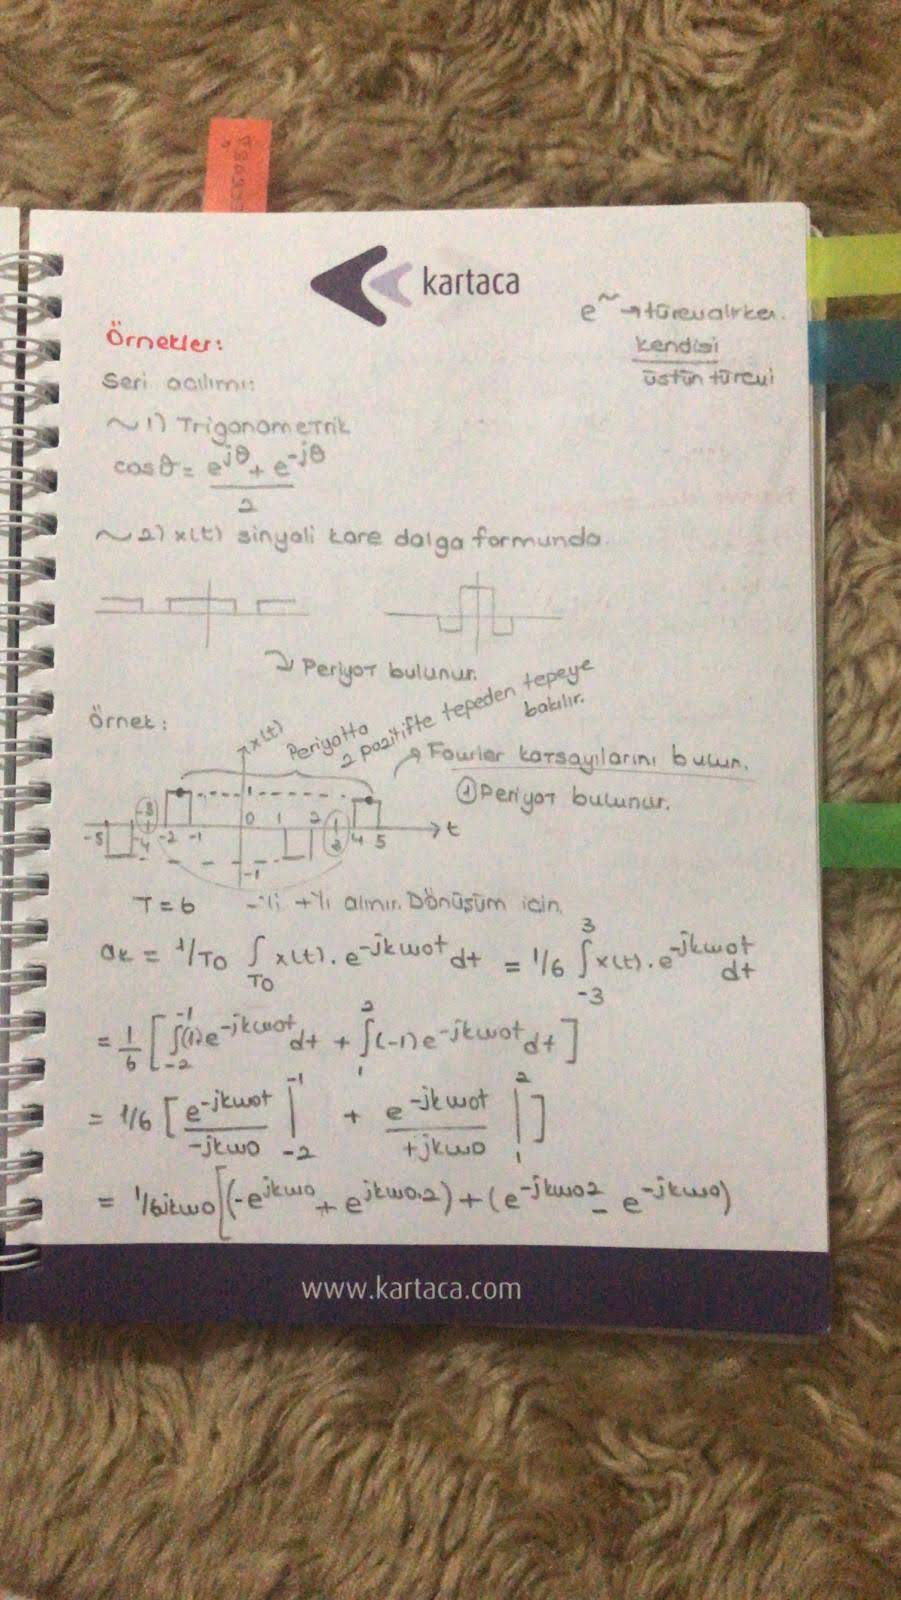 kartaca
e~ → türev alırken.
kendisi
üstün türevi
Örnekler:
Seri açılımı:
~1) Trigonometrik
cosθ = e^jθ + e^-jθ
2
~2) x(t) sinyali kare dalga formunda.
↪ Periyot bulunur.
Örnek:
x(t)
Periyotta
2 pozitifte tepeden tepeye
bakılır.
→ Fourier katsayılarını bulun.
① Periyot bulunur.
-5 -4 -3 -2 -1 0 1 2 3 4 5 → t
1
-1
T=6 -'li +'lı alınır. Dönüşüm için.
ak = 1/T0 ∫T0 x(t). e^-jkw0t dt = 1/6 ∫-3^3 x(t). e^-jkw0t dt
= 1/6 [ ∫-2^-1 (1) e^-jkw0t dt + ∫1^2 (-1) e^-jkw0t dt ]
= 1/6 [ e^-jkw0t / -jkw0 |-2^-1 + e^-jkw0t / +jkw0 |1^2 ]
= 1/6jkw0 [ (-e^jkw0 + e^jkw0.2) + (e^-jkw02 - e^-jkw0)
www.kartaca.com